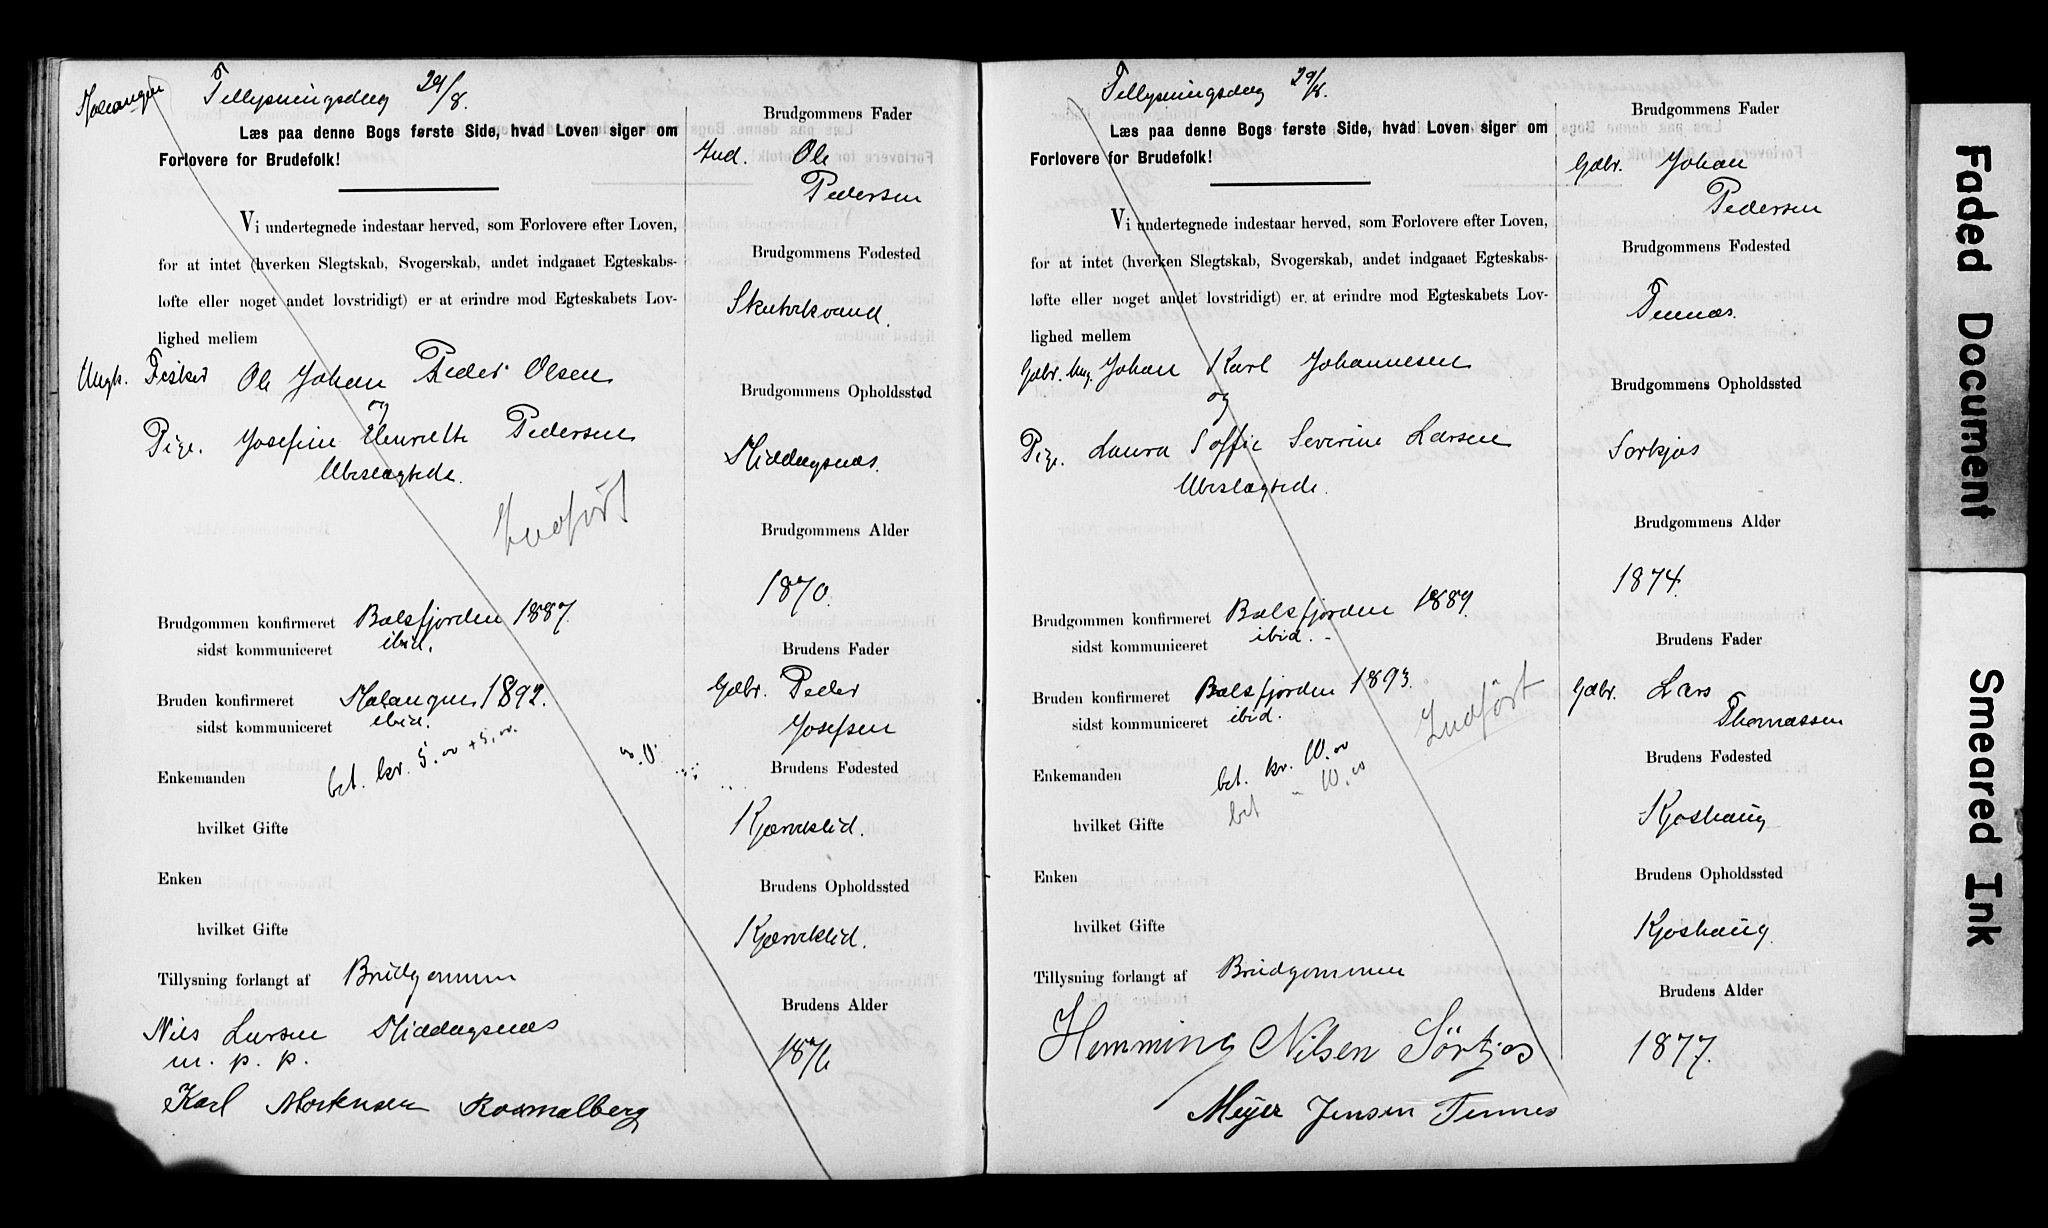 Malangen
Tillysningsdag 29/8.
Læs paa denne Bogs første Side, hvad Loven siger om
Forlovere for Brudefolk!
Vi undertegnede indestaar herved, som Forlovere efter Loven,
for at intet (hverken Slegtskab, Svogerskab, andet indgaaet Egteskabs-
løfte eller noget andet lovstridigt) er at erindre mod Egteskabets Lov-
lighed mellem
Ungk. Fisker Ole Johan Peder Olsen
og
Pige. Josefine Henrikke Pedersen
Ubeslægtede.
Indført
Brudgommen konfirmeret Balsfjorden 1887.
sidst kommuniceret ibid.
Bruden konfirmeret Malangen 1892.
sidst kommuniceret ibid.
bet. kr. 5.00 + 5.00.
Enkemanden
hvilket Gifte
Enken
hvilket Gifte
Tillysning forlangt af Brudgommen
Nils Larsen Middagsnæs
m. p. p.
Karl Mortensen
Brudgommens Fader
Ind. Ole
Pedersen
Brudgommens Fødested
Brudgommens Opholdssted
Middagsnæs.
Brudgommens Alder
1870.
Brudens Fader
Gdbr. Peder
Josefsen
Brudens Fødested
Kjærviklid.
Brudens Opholdssted
Kjærviklid.
Brudens Alder
1876
Tillysningsdag 29/8.
Læs paa denne Bogs første Side, hvad Loven siger om
Forlovere for Brudefolk!
Vi undertegnede indestaar herved, som Forlovere efter Loven,
for at intet (hverken Slegtskab, Svogerskab, andet indgaaet Egteskabs-
løfte eller noget andet lovstridigt) er at erindre mod Egteskabets Lov-
lighed mellem
Gdbr. Ung. Johan Karl Johannesen
og
Pige. Laura Soffie Severine Larsen
Ubeslægtede.
Brudgommen konfirmeret Balsfjorden 1889.
sidst kommuniceret ibid.
Bruden konfirmeret Balsfjorden 1893.
sidst kommuniceret ibid.
Indført
bet. kr. 10.00
Enkemanden
bet " 10.00
hvilket Gifte
Enken
hvilket Gifte
Tillysning forlangt af Brudgommen
Hemming Nilsen Sörkjos
Meyer Jensen Tennes
Brudgommens Fader
Gdbr. Johan
Pedersen
Brudgommens Fødested
Tennæs.
Brudgommens Opholdssted
Sørkjos
Brudgommens Alder
1874.
Brudens Fader
Gdbr. Lars
Thomassen
Brudens Fødested
Kjoshaug
Brudens Opholdssted
Kjoshaug.
Brudens Alder
1877.
Faded Document
Smeared Ink